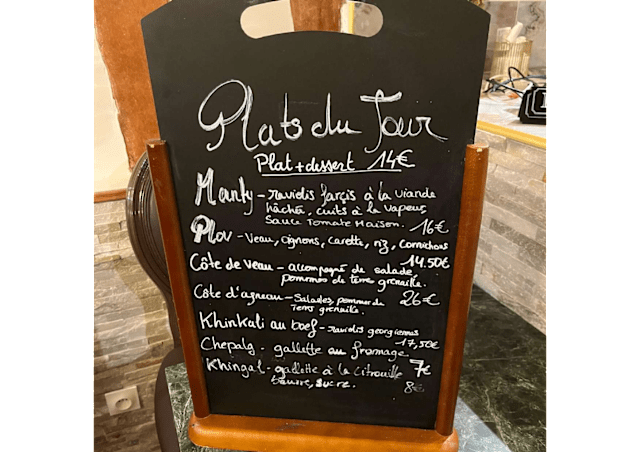 Plats du Jour
Plat + dessert 14€
Manty - raviolis farçis à la viande
hâchée, cuits à la vapeur,
Sauce Tomate Maison. 16€
Plov - Veau, oignons, carotte, riz, cornichons
14.50€
Côte de veau - accompagné de salade,
pommes de terre grenaille.
Côte d'agneau - Salades, pomme de 26€
Terre grenaille.
Khinkali au boef - raviolis georgiennes
17,50€
Chepalg - gallette au fromage
7€
Khingal - gallette à la Citrouille
beurre, sucre. 8€